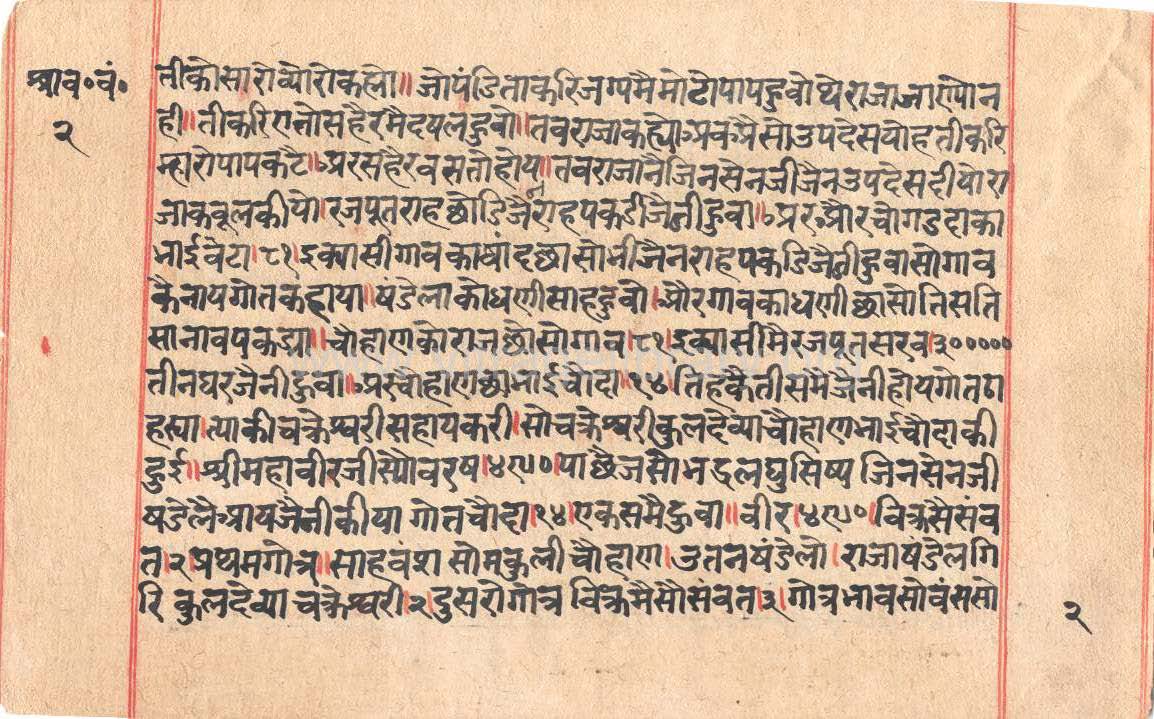 श्राव॰वं॰
२
तीकौसारोव्यौरोकह्यो॥जोपंडिताकरिजग्यमैमोटोपापहुवोथेराजाजाण्यौन
ही॥तीकरिएतोसहैरमैदषलहुवो॥तवराजाकह्यौअवऐसोउपदेसद्योहतीकरि
म्हारोपापकटै॥अरसहैरवसतोहोय॥तवराजानैजिनसेनजीजैनउपदेसदीयोरा
जाकवूलकीयो।रजपूतराहछोडिजैनराहपकडीजैनीहुवा॥अरऔरचौगडदाका
भाईवेटा।८१।इक्यासीगावकाषांदछासोभीजैनराहपकडिजैनीहुवासोगाव
कैनायगोतकहाया॥षंडेलाकोधणीसाहहुवो।औरगावकाधणीछासोतिसति
सानावषकह्या॥चौहाणकोराजछोसोगाव।८१।इक्यासीमैरजपूतसरव।३०००००
तीनघरजैनीहुवा॥अरचौहाणछाभाईचौदा॥१४।तिहकैतीसमैजैनीहोयगोतठा
हस्या।त्याकीचक्रेश्वरीसहायकरी।सोचक्रेश्वरीकुलदेव्याचौहाणभाईचौदाकी
हुई॥श्रीमहावीरजीस्यौवरष।४९०।पाछैजसोभद्रलघुसिष्य जिनसेनजी
षडेलैआयजैनीकीया गोतचौदा।१४।एकसमैहुवा॥वीर।४९०।विक्रमैसंव
त।२।प्रथमगोत्र॥साहवंश सोमकुली चौहाण। उतनषंडेलो। राजाषंडेलगि
रि कुलदेव्या चक्रेश्वरी।२।दुसरोगोत्र विक्रमैसौसंवत।३।गोत्रभावसोवंससो
२